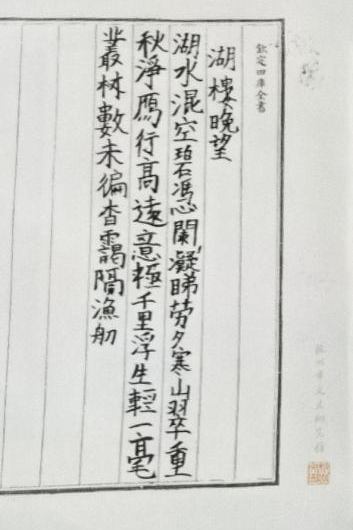 欽定四庫全書
湖樓晚望
湖水混空碧馮心闌凝睇勞夕寒山翠重
秋淨鴈行高遠意極千里浮生輕一毫
叢林數未徧杳靄隔漁舠